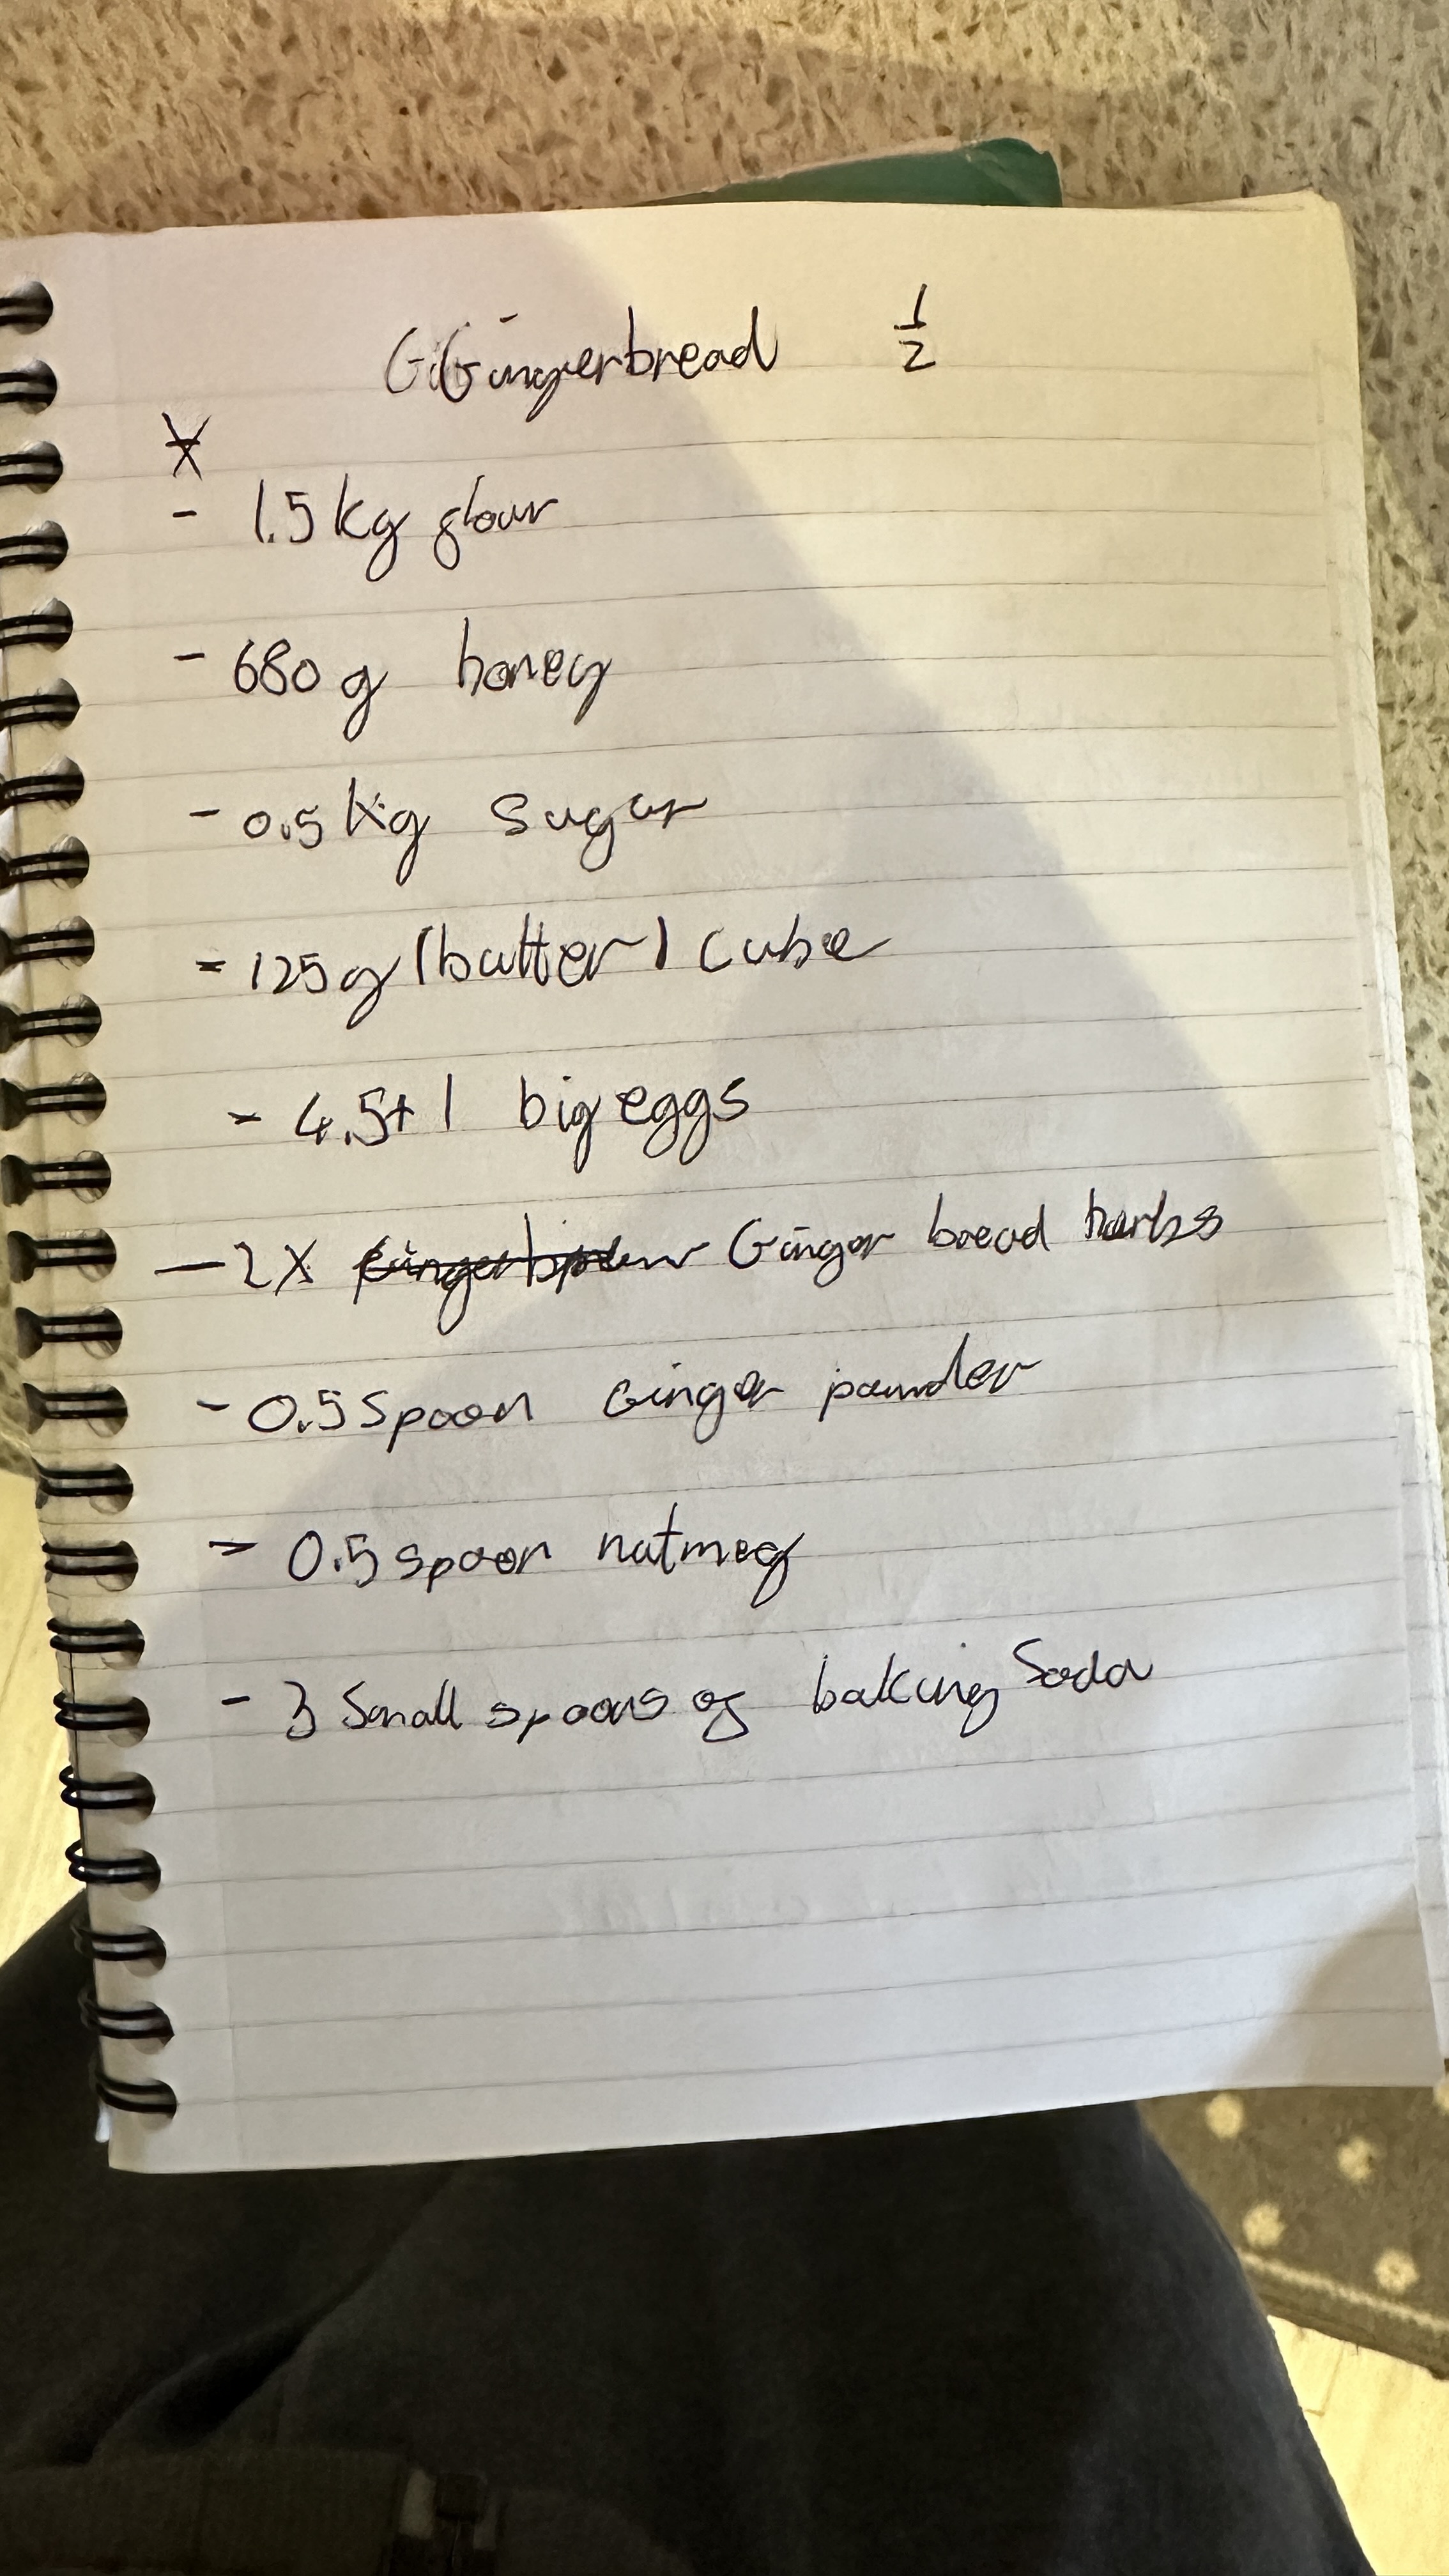 Gingerbread 1/2
- 1.5kg flour
- 680g honey
- 0.5kg sugar
- 125g (butter) cube
- 4.5+1 big eggs
- 2X Ginger bread herbs
- 0.5 spoon Ginger pawder
- 0.5 spoon nutmeg
- 3 Small spoons of baking Soda